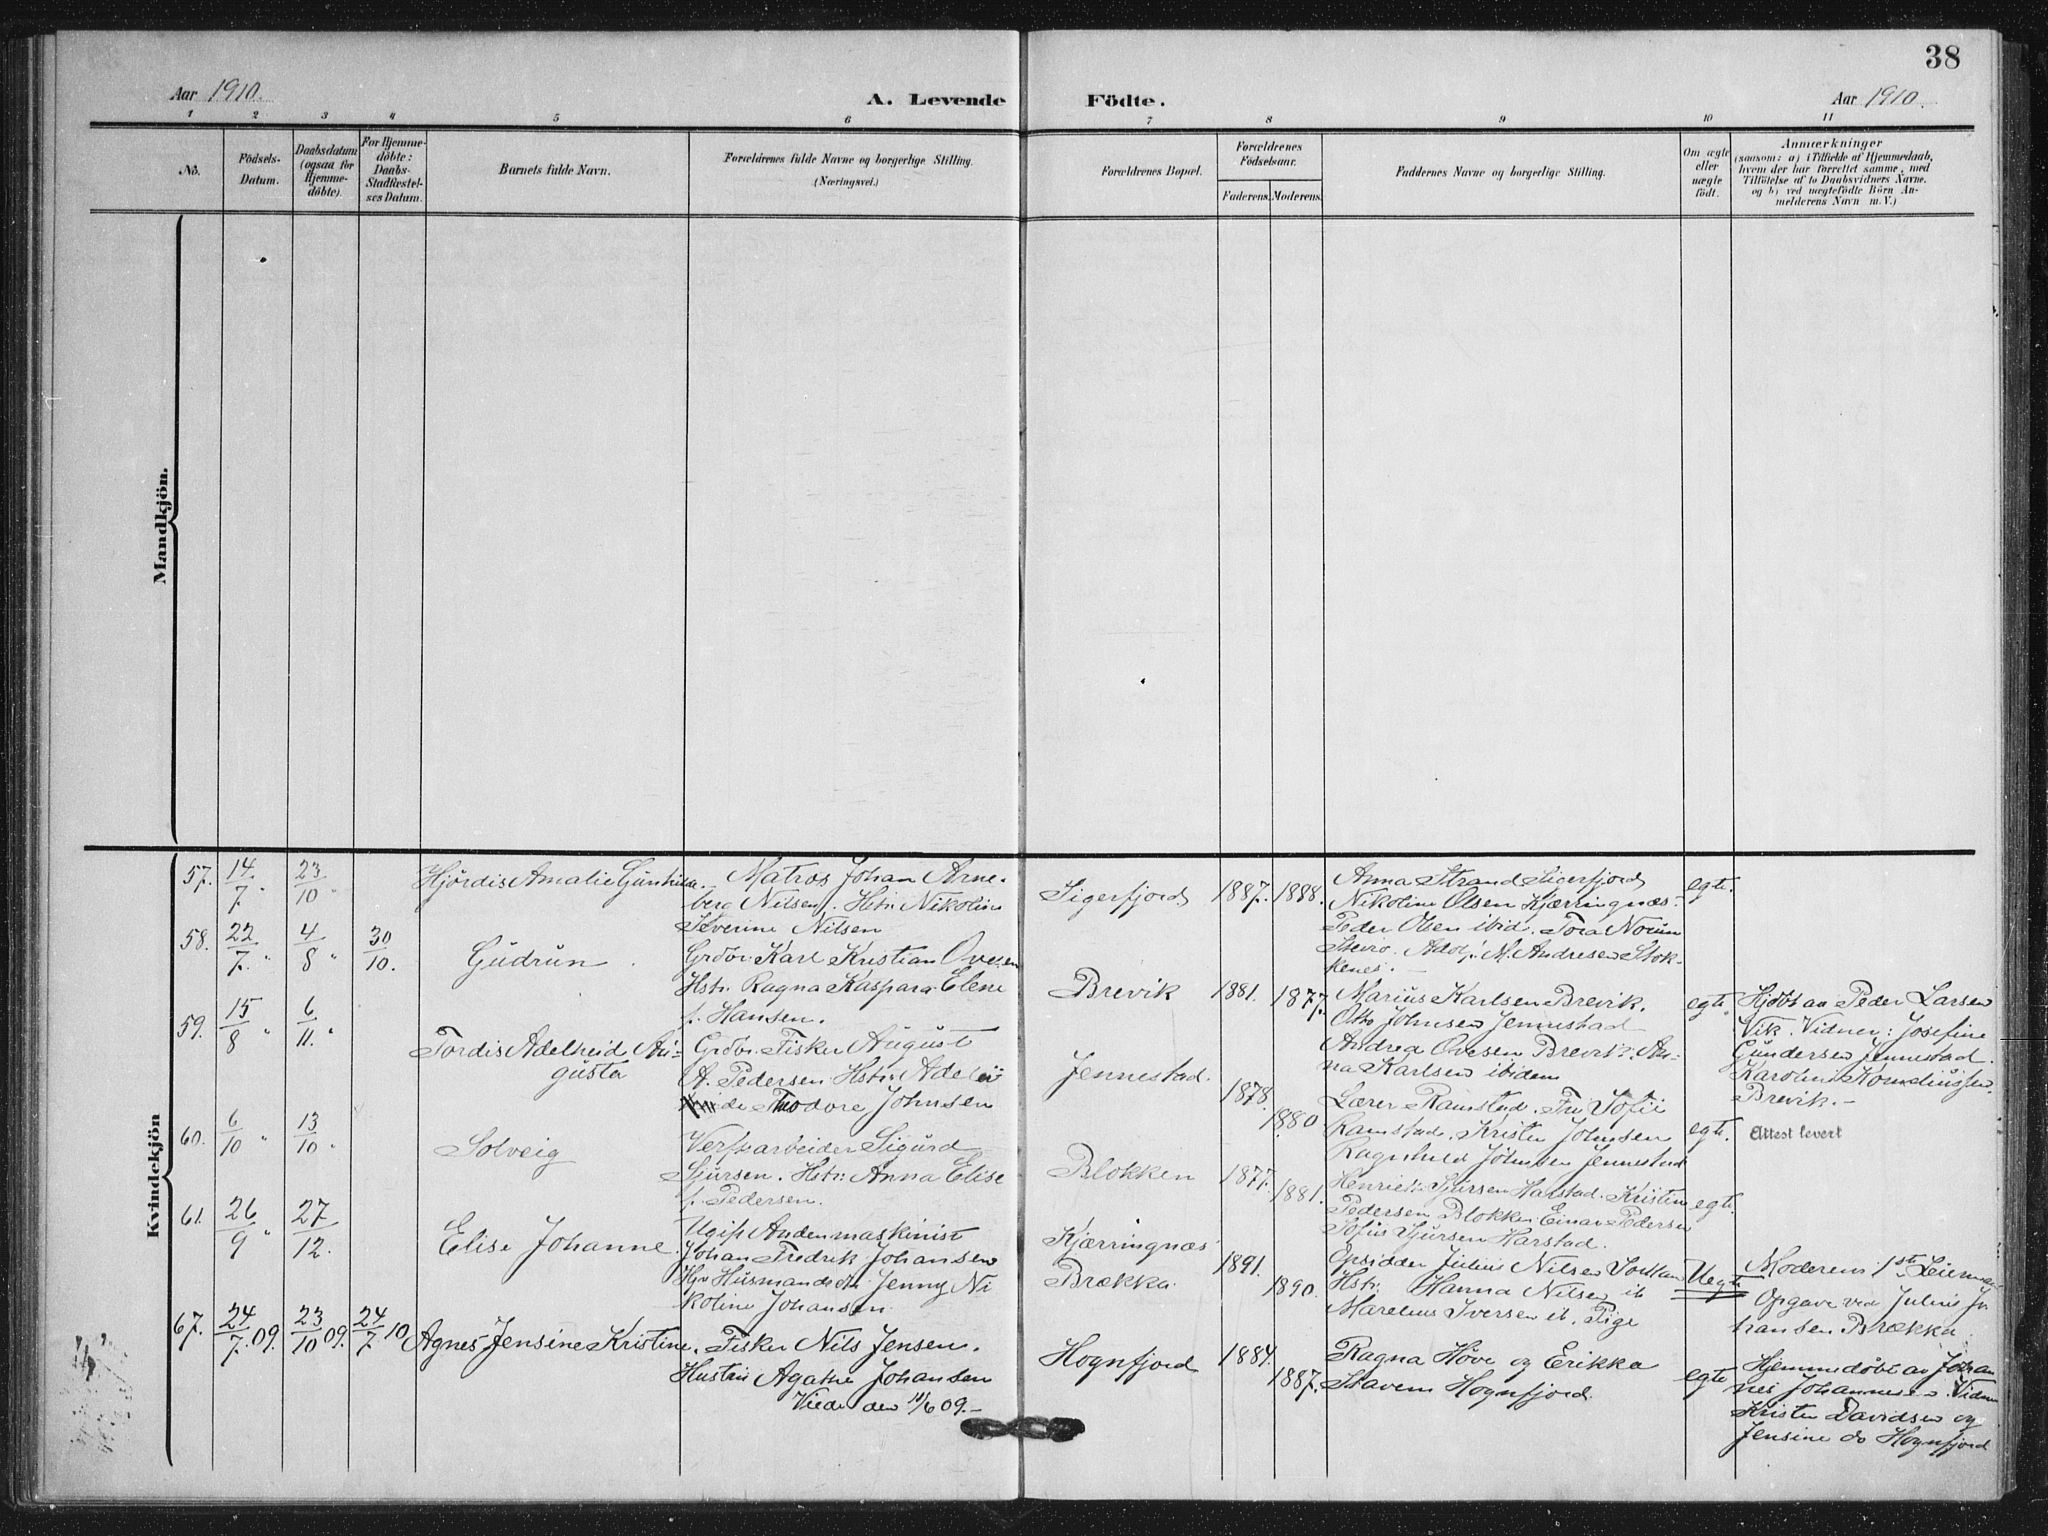 38
Aar 1910.
A. Levende
Födte.
Aar 1910.
1 2 3 4 5 6 7 8 9 10 11
No.
Födsels-
Datum.
Daabsdatum
(ogsaa for
Hjemme-
döbte).
For Hjemme-
döbte:
Daabs-
Stadfæstel-
ses Datum.
Barnets fulde Navn.
Forældrenes fulde Navne og borgerlige Stilling.
(Næringsvei.)
Forældrenes Bopæl.
Forældrenes
Födselsaar.
Faderens. Moderens.
Faddernes Navne og borgerlige Stilling.
Om ægte
eller
uægte
födt.
Anmærkninger
(saasom: a) i Tilfælde af Hjemmedaab,
hvem der har forrettet samme, med
Tilföielse af to Daabsvidners Navne,
og b) ved uægtefödte Börn An-
melderens Navn m. V.)
Mandkjön.
Kvindekjön
57. 14/7 " 23/10 "
Hjørdis Amalie Gunhilda.
Matros Johan Arne-
berg Nilsen. Hstr: Nikoline
Severine Nilsen
Sigerfjord 1887. 1888.
Anna Strand Sigerfjord
Nikoline Olsen Kjærringnæs-
Peder Olsen ibid. Tora Norum
M. Andresen Stok-
kenes. -
egte.
58. 22/7. " 4/8 " 30/10.
Gudrun
Grdbr. Karl Kristian Ovesen
Hstr. Ragna Kaspara Elene
f. Hansen.
Brevik 1881. 1877.
Marius Karlsen Brevik.
Otto Johnsen Jennestad
Andrea Ovesen Brevik. An-
na Karlsen ibidem
egte.
Hjdbt av Peder Larsen
Vik. Vidner: Josefine
Gundersen Jennestad.
Karoline Korneliussen
Brevik. -
59. 15/8 " 6/11. "
Tordis Adelheid Au-
gusta
Grdbr. Fisker August
A. Pedersen Hstr. Adele
Theodore Johnsen
Jennestad. 1878. 1880
Lærer Ramstad. Fru Sofie
Ramstad. Kristen Johnsen
Ragnhild Johnsen Jennestad
egte.
Attest levert
60. 6/10 " 13/10 "
Solveig
Verksarbeider Sigurd
Sjursen. Hstr: Anna Elise
f. Pedersen.
Blokken 1877. 1881.
Henrik Sjursen Harstad. Kristine
Pedersen Blokken Einar Pedersen
Sofus Sjursen Harstad.
egte.
61. 26/9 " 27/12.
Elise Johanne.
Ugift Andenmaskinist
Johan Fredrik Johansen
Husmandsdtr Jenny Ni
koline Johansen
Kjærringnæs
Brækka. 1891. 1890.
Opsidder Julius Nilsen
Hstr: Hanna Nilsen ib
Marelius Iversen ib. Pige
Uegte
Moderens 1ste Leierm.
Opgave ved Julius Jo
hansen Brækka
67. 24/7. 09. 23/10 09. 24/7 10
Agnes Jensine Kristine.
Fisker Nils Jensen.
Hustru Agathe Johansen
Viede den 11/6 09. -
Hognfjord 1884. 1887.
Ragna Höve og Erikka
Stavem Hognfjord.
egte
Hjemmedøbt av Johan
nes Johannesen. Vidner
Kristen Davidsen og
Jensine do Hognfjord